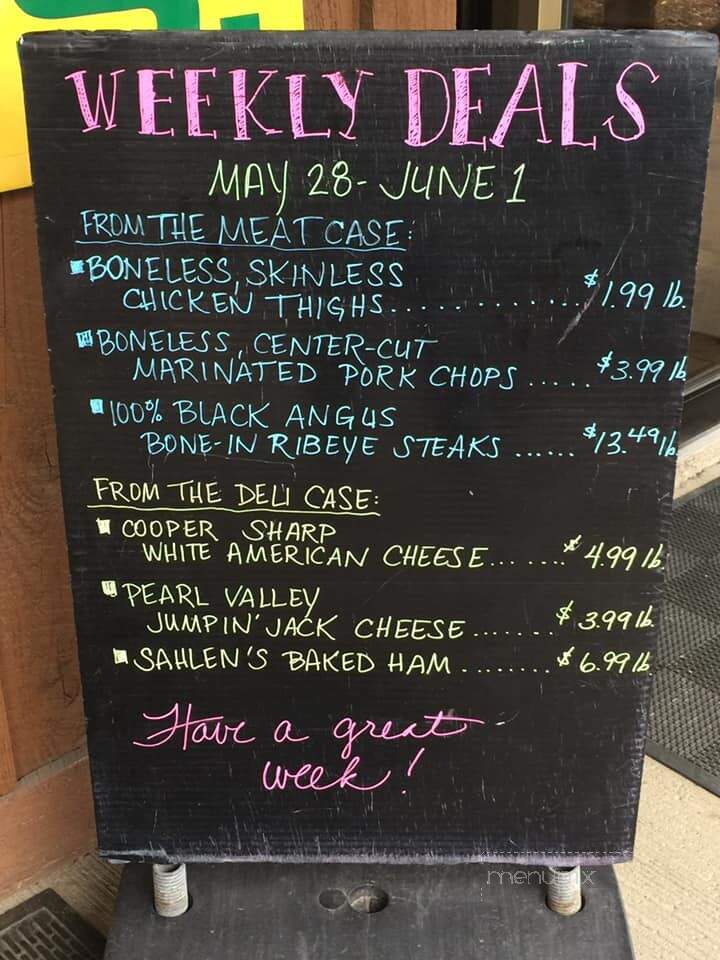 WEEKLY DEALS
MAY 28 - JUNE 1
FROM THE MEAT CASE:
BONELESS, SKINLESS
CHICKEN THIGHS.............. $1.99 lb.
BONELESS, CENTER-CUT
MARINATED PORK CHOPS ..... $3.99 lb
100% BLACK ANGUS
BONE-IN RIBEYE STEAKS ...... $13.49 lb.
FROM THE DELI CASE:
COOPER SHARP
WHITE AMERICAN CHEESE... .... $4.99 lb.
PEARL VALLEY
JUMPIN' JACK CHEESE ....... $3.99 lb.
SAHLEN'S BAKED HAM ........ $6.99 lb.
Have a great
week!
menupix